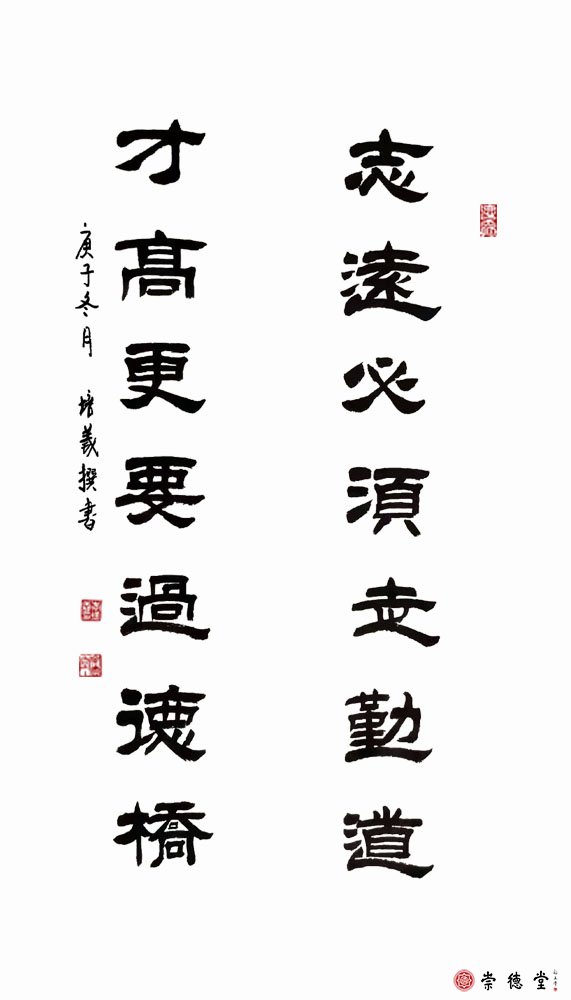 志遠必須走勤道
才高更要過德橋
庚子冬月 培義撰書
崇德堂